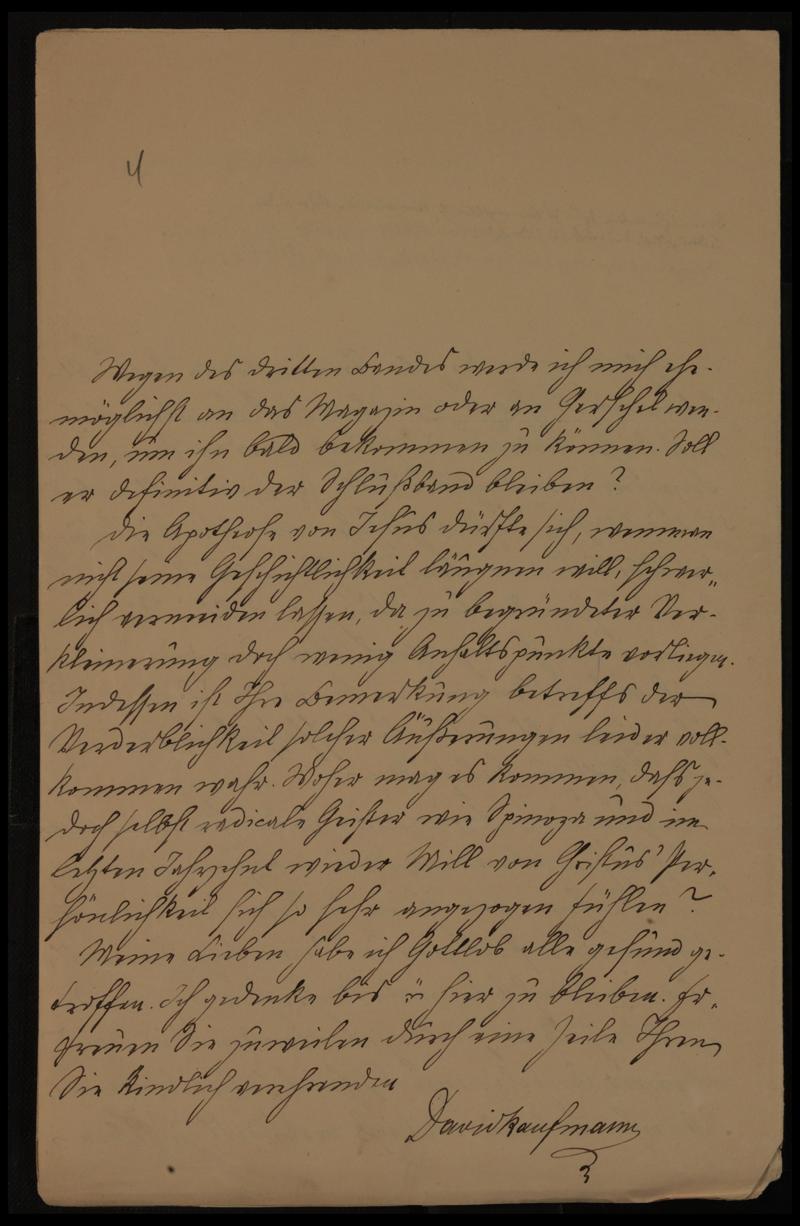 4
Wegen des dritten Bandes werde ich mich ehe-
möglichst an das Magazin oder an Gerschel wen-
den, um ihn bald bekommen zu können. Soll
er definitiv der Schlußband bleiben?
Die Apotheose von Jesus dürfte sich, wenn man
nicht seine Geschichtlichkeit läugnen will, schwer-
lich vermeiden lassen, da zu begründeter Ver-
kleinerung doch wenig Anhaltspunkte vorliegen.
Indessen ist Ihre Bemerkung betreffs der
Verderblichkeit solcher Äußerungen leider voll-
kommen wahr. Woher mag es kommen, dass je-
doch selbst radicale Geister wie Spinoza und im
letzten Jahrzehnt wieder Mill von Christus' Per-
sönlichkeit sich so sehr angezogen fühlen?
Meine Lieben habe ich Gottlob alle gesund ge-
troffen. Ich gedenke bis hier zu bleiben. Er-
freuen Sie zuweilen durch eine Zeile Ihren
Sie kindlich verehrenden
David Kaufmann